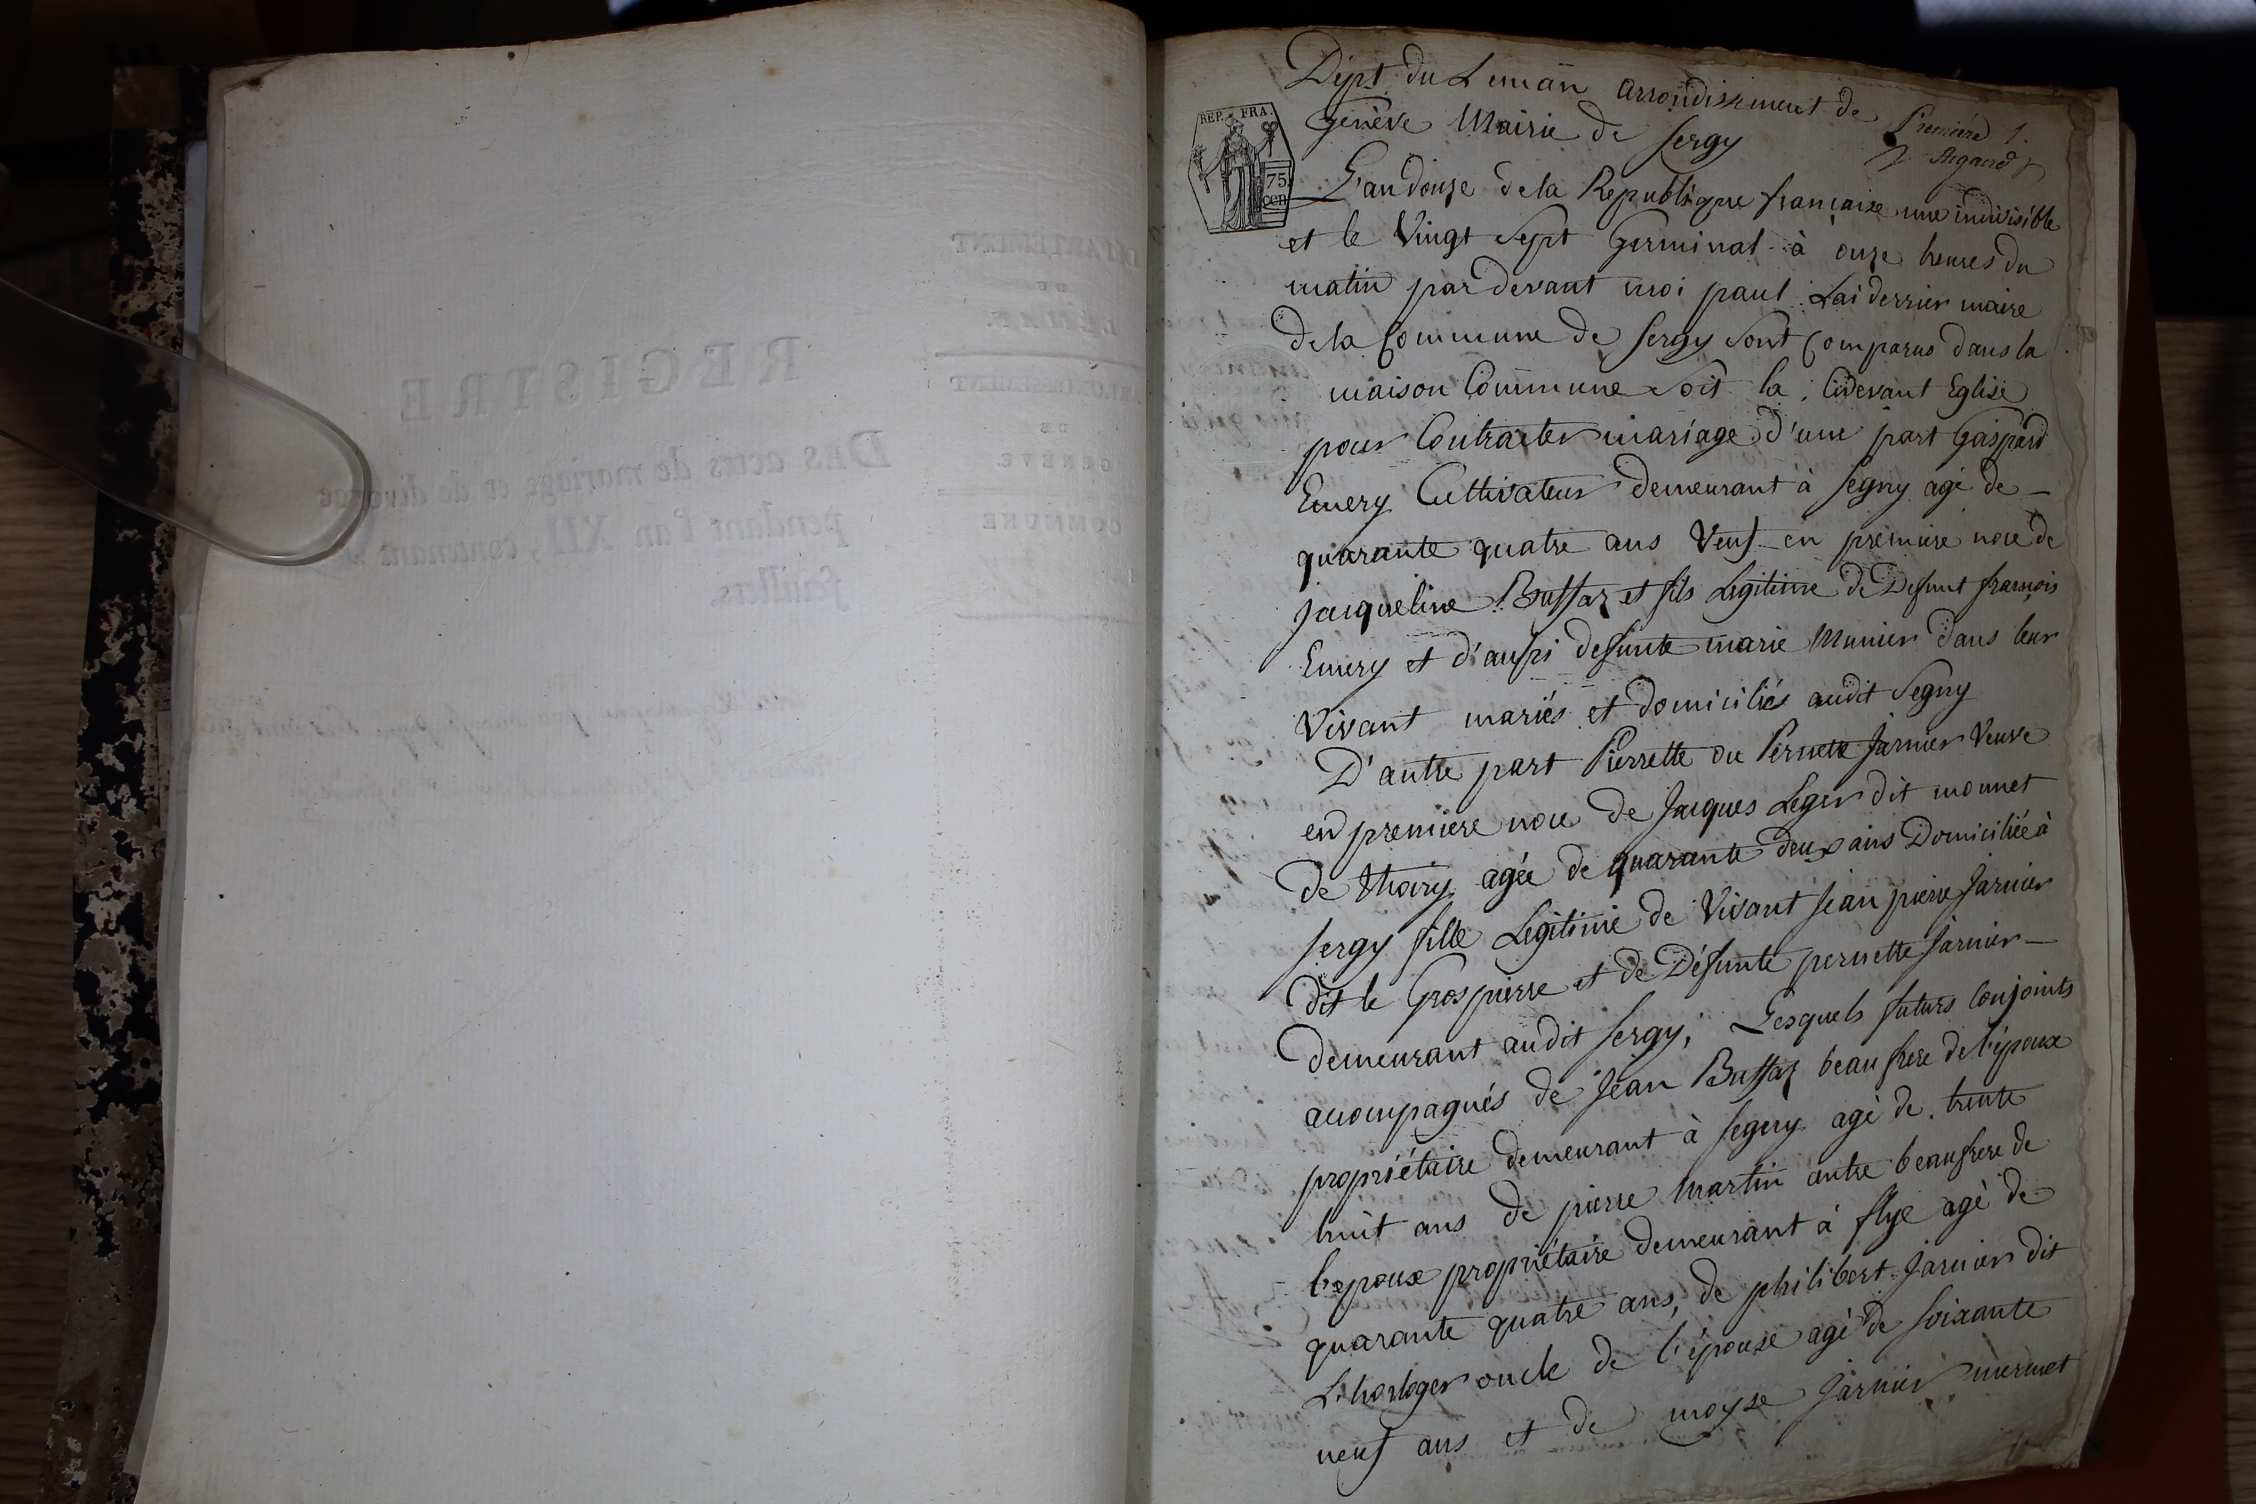 REGISTRE
Des actes de mariage et de divorce
pendant l'an XII, contenant
feuillets.
DÉPARTEMENT
DU
LÉMAN.
ARRONDISSEMENT
DE
GENÈVE.
COMMUNE
REP. FRA.
75
cen
Premiere 1.
Rigaud
Dept. du Leman arrondissement de
Genève Mairie de Sergy
L'an douze de la Republique française une indivisible
et le Vingt Sept Germinal à onze heures du
matin par devant moi paul Laiderrier maire
de la Commune de Sergy sont Comparus dans la
maison Commune soit la Cidevant Eglise
pour Contracter mariage d'une part Gaspard
Emery Cultivateur demeurant à Segny agé de
quarante quatre ans Veuf en premiere noce de
Jacqueline Buffaz et fils Legitime de Defunt françois
Emery et d'aussi defunte marie Munier dans leur
Vivant mariés et domiciliés audit Segny
D'autre part Pierrette ou Pernette Jarnier Veuve
en premiere noce de Jacques Leger dit monnet
de thoiry agée de quarante deux ans Domiciliée à
Sergy fille Légitime de Vivant Jean pierre Jarnier
dit le Gros pierre et de Défunte pernette Jarnier
demeurant audit Sergy, Lesquels futurs Conjoints
acompagnés de Jean Buffaz beau frere de l'époux
propriétaire demeurant à Segny agé de trente
huit ans de pierre Martin autre beaufrere de
l'epoux propriétaire demeurant à flye agé de
quarante quatre ans, de philibert Jarnier dit
L'horloger oncle de l'épouse agé de soixante
neuf ans et de moyse Jarnier mermet